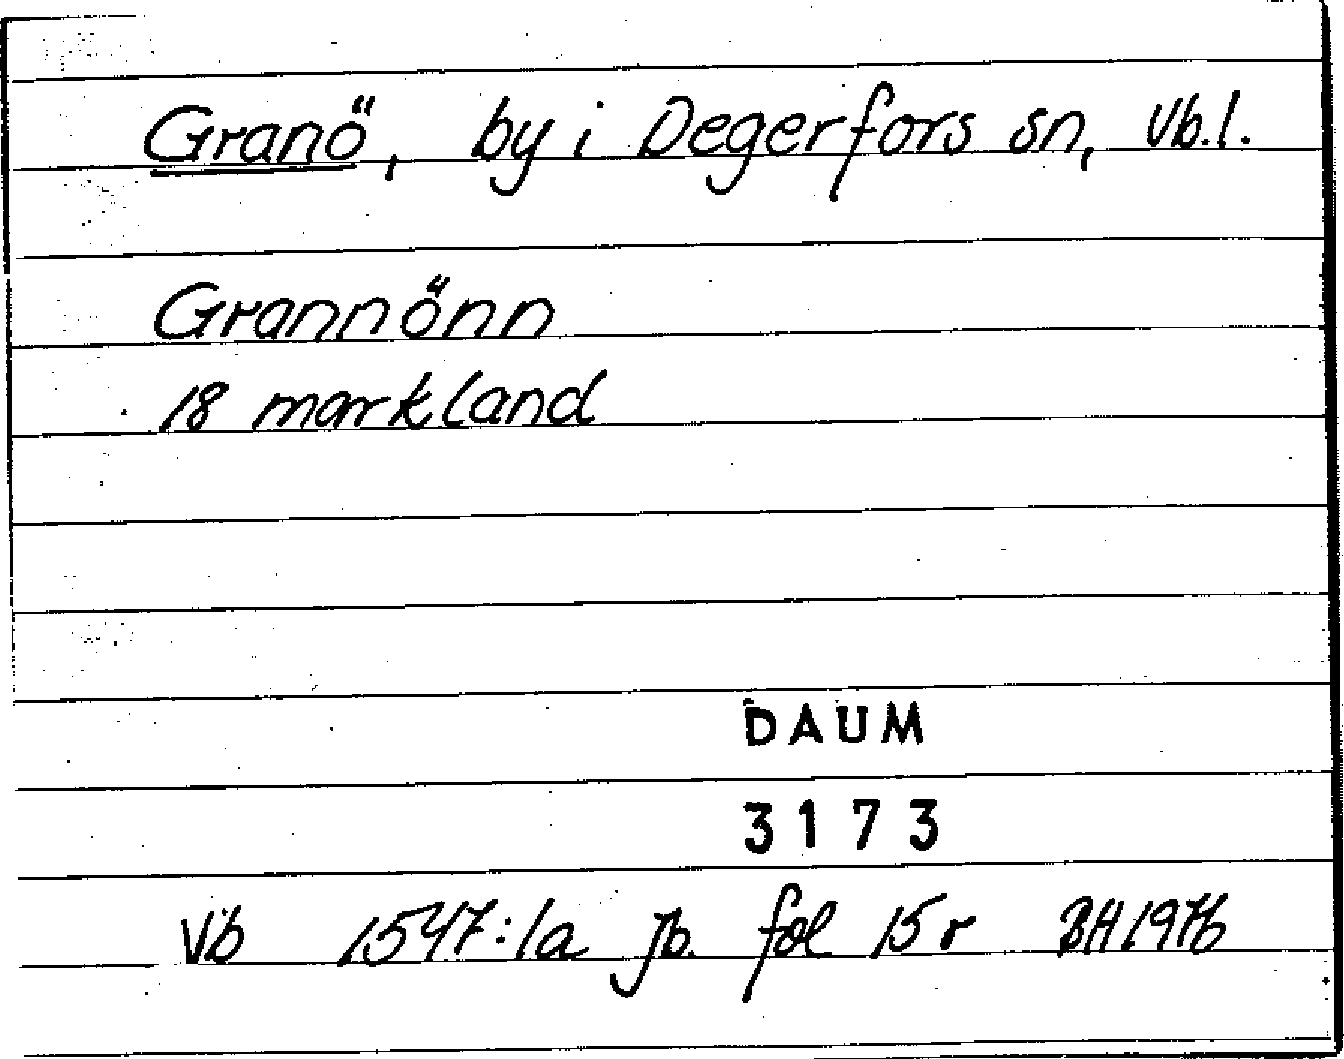 Granö, by i Degerfors sn, Vb.l.
Grannönn
18 markland
DAUM
3173
Vb 1547:1a jb. fol 15r BH1976